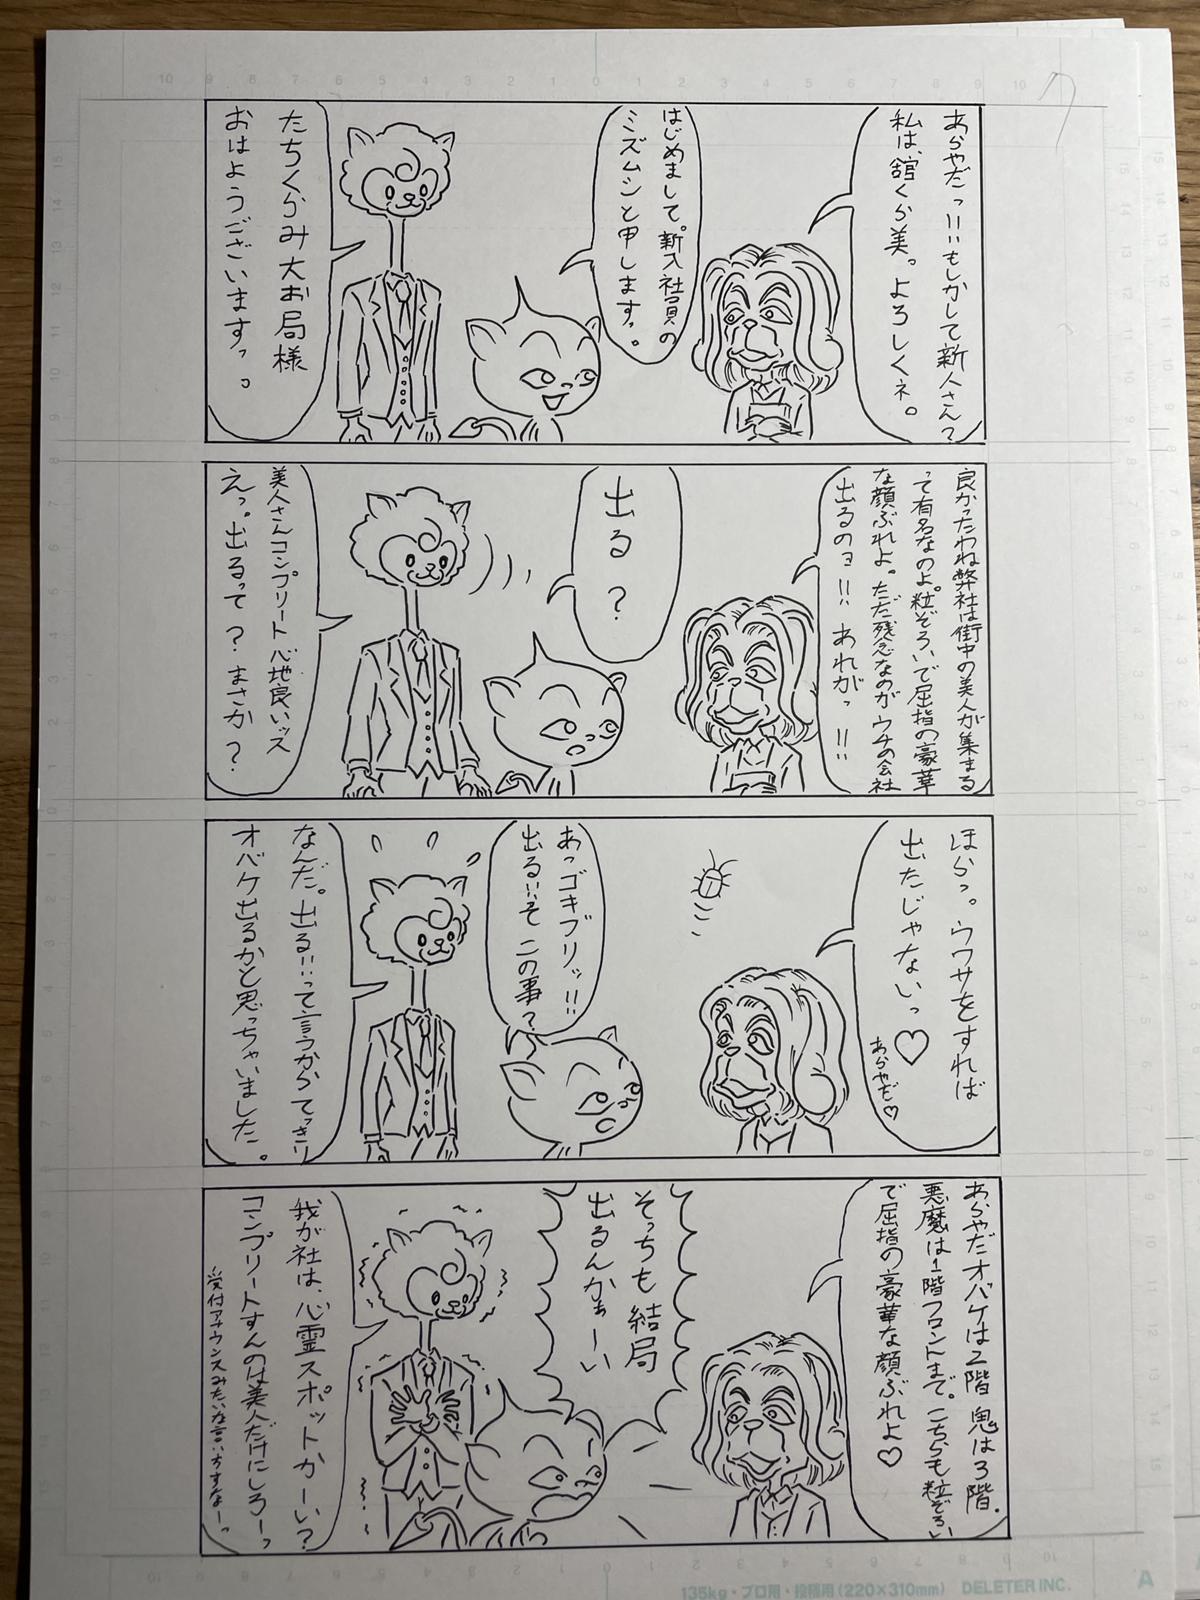 あらやだっ!!!もしかして新人さん?
私は、舘くら美っ。よろしくネ。
はじめまして。新入社員の
ミズムシと申しますっ。
たちくらみ大お局様
おはようございますっ。
良かったわね弊社は街中の美人が集まる
って有名なのよ。粒ぞろいで屈指の豪華
な顔ぶれよ。ただ残念なのが ウチの会社
出るのヨ!!! あれがっ !!!
出る?
美人さんコンプリート 心地良いッス
えっ。出るって? まさか?
ほらっ。ウワサをすれば
出たじゃないっ♡
あらやだ♡
あっゴキブリッ!!!
出る!!!そ この事?
なんだ。出る!!!って言うからてっきり
オバケ出るかと思っちゃいました。
あらやだオバケは2階 鬼は3階.
悪魔は1階フロントまで。こちらも粒ぞろい
で屈指の豪華な顔ぶれよ♡
そっちも結局
出るんかぁーい
我が社は、心霊スポットかーい?
コンプリートすんのは美人だけにしろーっ
受付アナウンスみたいな言い方すなーっ
135kg・プロ用・投稿用(220×310mm) DELETER INC.
A